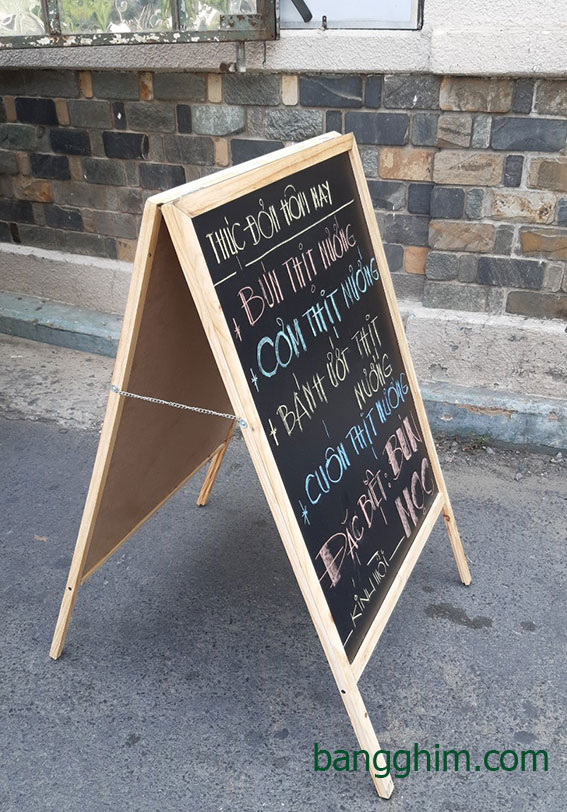 THỰC ĐƠN HÔM NAY
* BÚN THỊT NƯỚNG
* CƠM THỊT NƯỚNG
* BÁNH ƯỚT THỊT
NƯỚNG
* CUỐN THỊT NƯỚNG
ĐẶC BIỆT: BÚN
NỌC
KÍNH MỜI
bangghim.com